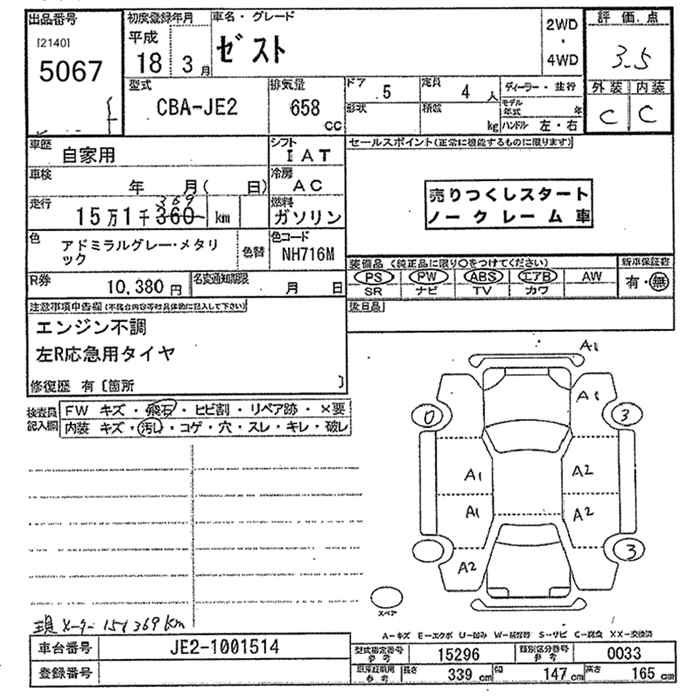 出品番号 初度登録年月 車名・グレード 2WD・4WD 評価点
[2140] 平成 ゼスト 3.5
5067 18 3月
型式 排気量 ドア 5 定員 4人 ディーラー・並行 外装 内装
CBA-JE2 658 cc 形状 積載 kg モデル年式 年 C C
ハンドル 左・右
車歴 自家用 シフト IAT セールスポイント(正常に機能するものに限ります)
車検 年 月( 日) 冷房 AC
369
走行 15万1千360 km 燃料 ガソリン
売りつくしスタート
ノークレーム車
色 アドミラルグレー・メタリック 色替 色コード NH716M
装備品 (純正品に限り○をつけてください) 新車保証書
PS PW ABS エアB AW 有・無
SR ナビ TV カワ
R券 10,380円 名変通知期限 月 日
後日品
注意事項申告欄(不具合内容等は具体的に記入して下さい)
エンジン不調
左R応急用タイヤ
修復歴 有〔箇所 〕
検査員記入欄 FW キズ・飛石・ヒビ割・リペア跡・×要
内装 キズ・汚れ・コゲ・穴・スレ・キレ・破レ
A1
A1
0 3
A1 A2
A1 A2
3
A2
スペア
現メーター151369km
A-キズ E-エクボ U-凹み S-サビ C-腐食 XX-交換済
車台番号 JE2-1001514 型式指定番号 参考 15296 類別区分番号 参考 0033
登録番号 参考 長さ 339 cm 幅 147 cm 高さ 165 cm